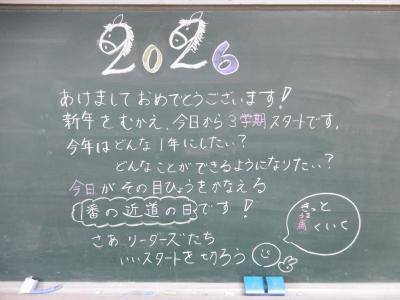 2026
あけましておめでとうございます!
新年をむかえ、今日から3学期スタートです。
今年はどんな1年にしたい?
どんなことができるようになりたい?
今日がその目ひょうをかなえる
1番の近道の日です!
さぁ リーダーズたち
いいスタートを切ろう
きっと
馬くいく
うま